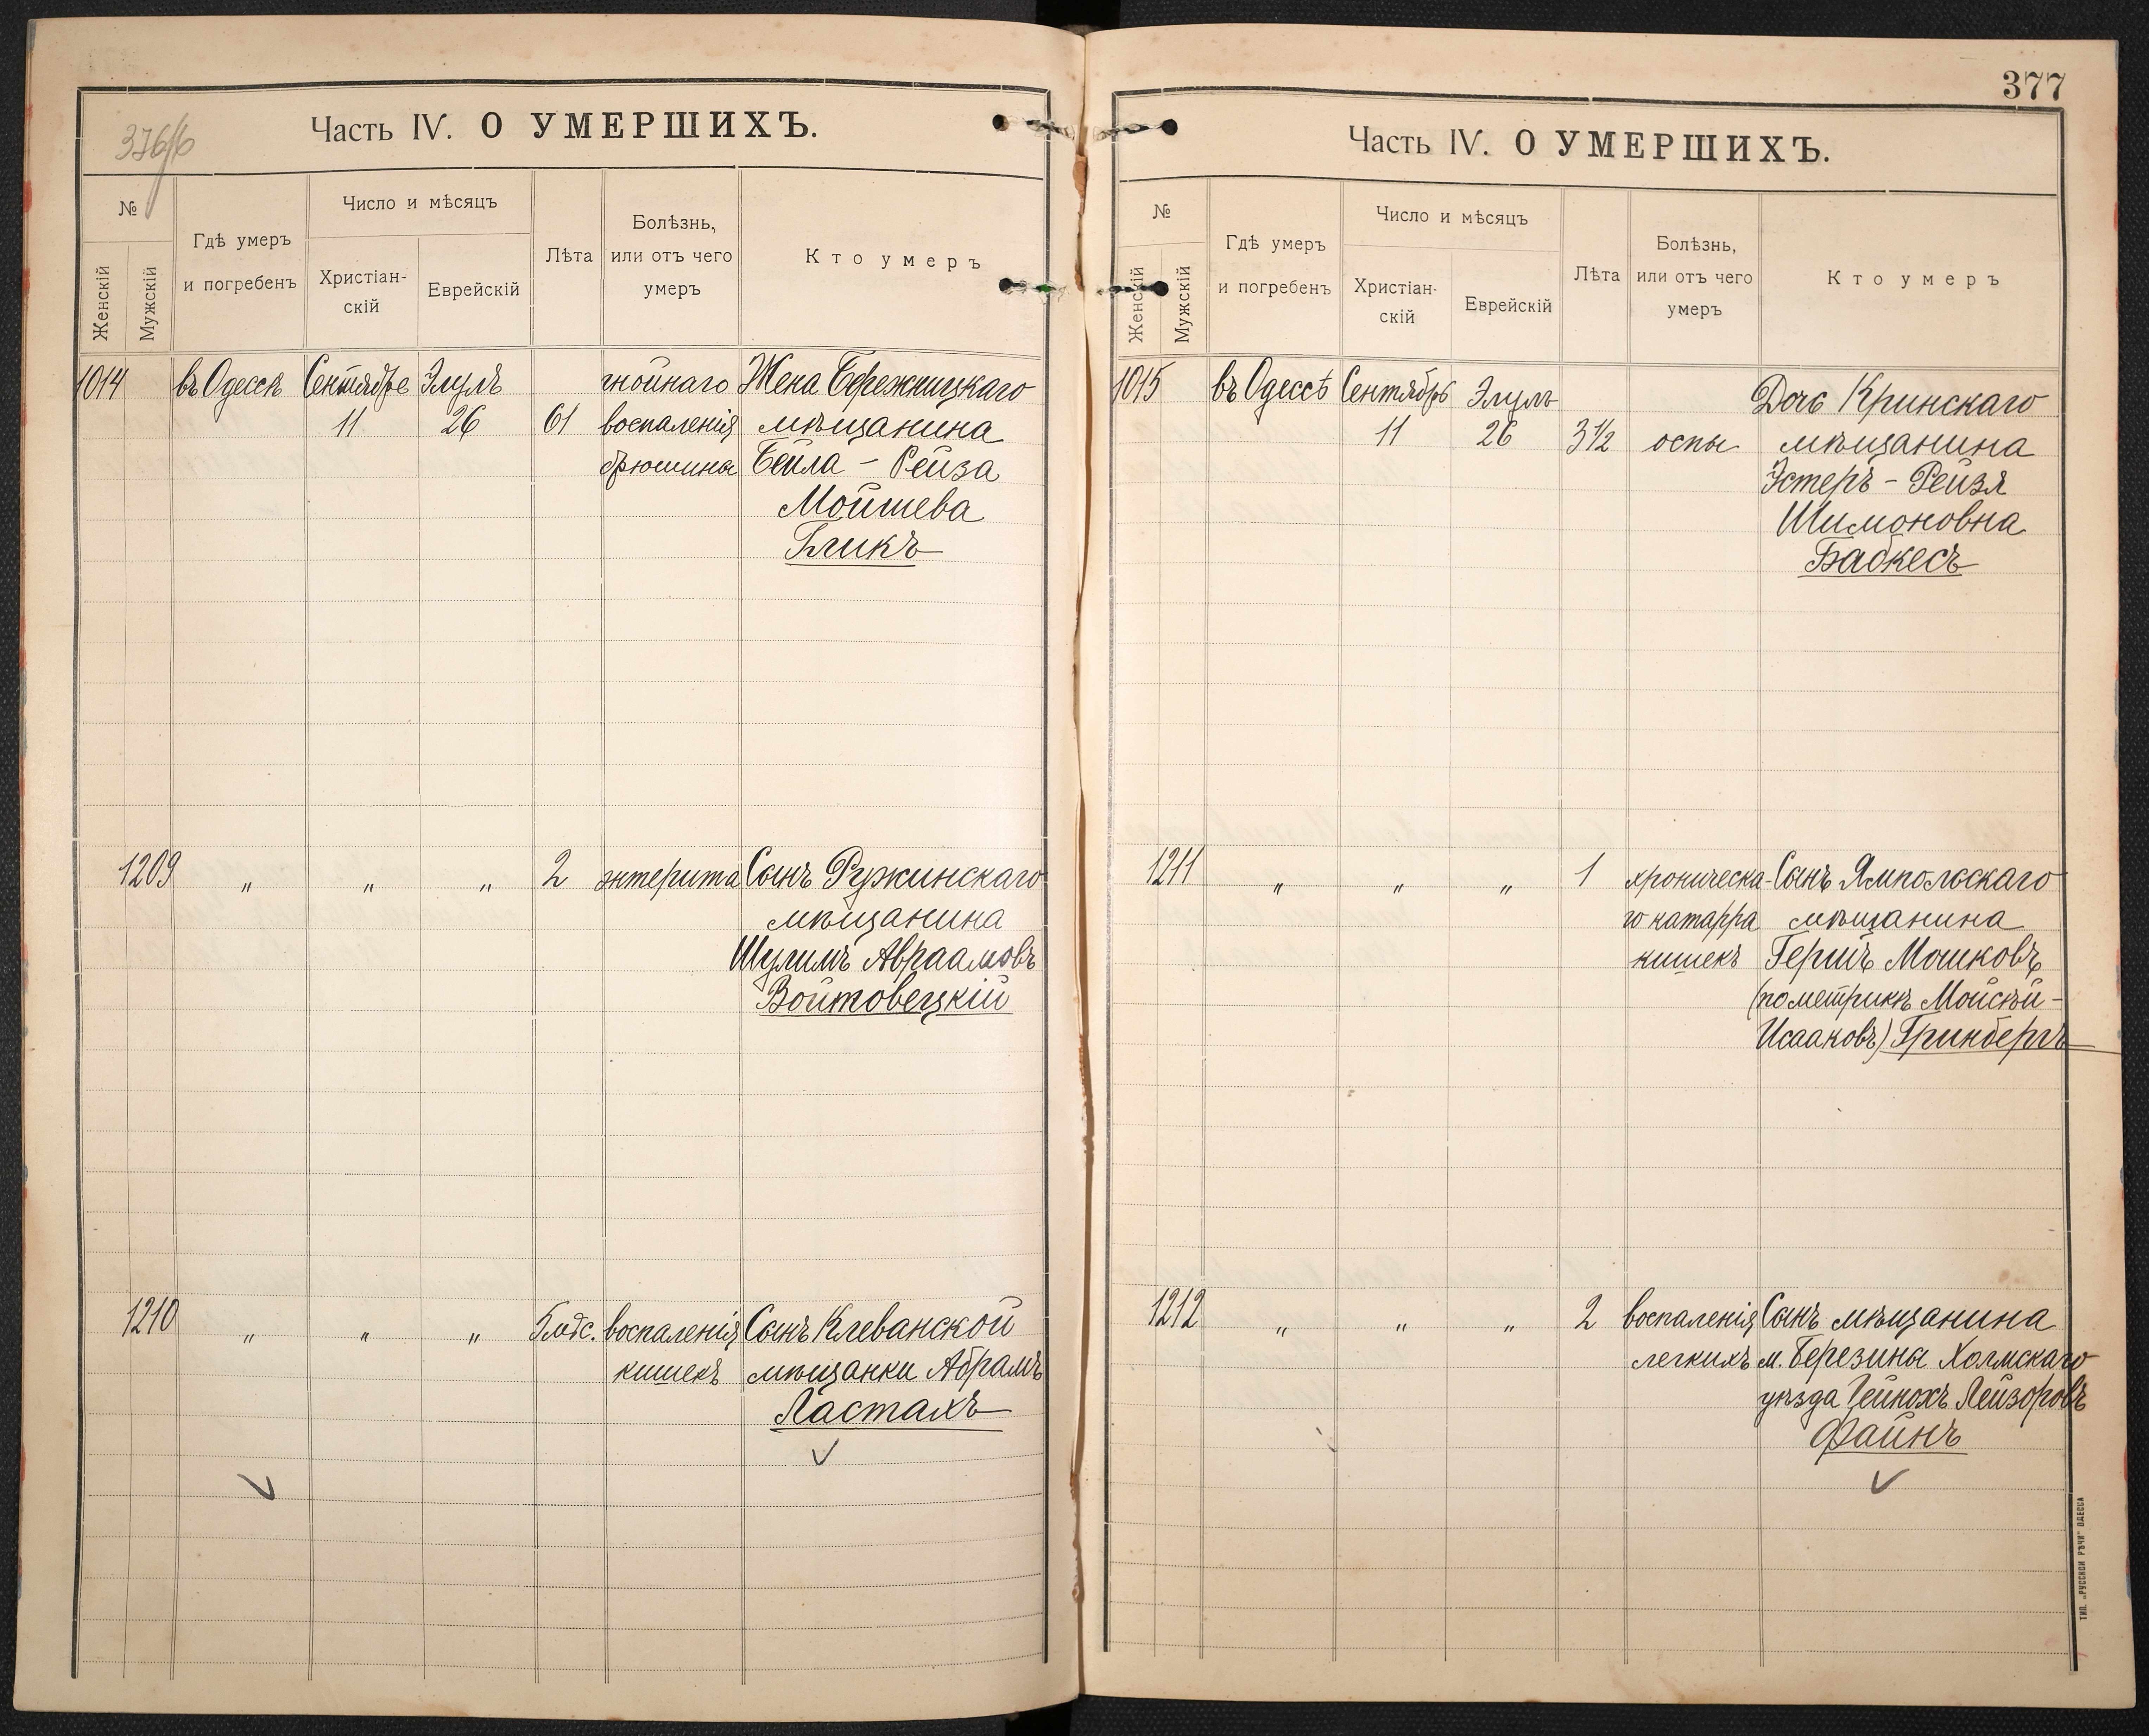 376/б
Часть IV. О УМЕРШИХЪ.
№
Женскій
Мужскій
Гдѣ умеръ
и погребенъ
Число и мѣсяцъ
Христіан-
скій
Еврейскій
Лѣта
Болѣзнь,
или отъ чего
умеръ
Кто умеръ
1014 въ Одессѣ Сентябре Элулъ гнойнаго Жена Бережницкаго
11 26 61 воспаленія мѣщанина
брюшины Бейла - Рейза
Мойшева
Бликъ
1209 " " " 2 энтерита Сынъ Ружинскаго
мѣщанина
Шулимъ Авраамовъ
Войтовецкій
1210 " " " 5 мѣс. воспаленія Сынъ Клеванской
кишекъ мѣщанки Абрамъ
Ластахъ
377
Часть IV. О УМЕРШИХЪ.
№
Женскій
Мужскій
Гдѣ умеръ
и погребенъ
Число и мѣсяцъ
Христіан-
скій
Еврейскій
Лѣта
Болѣзнь,
или отъ чего
умеръ
Кто умеръ
1015 въ Одессѣ Сентябрь Элулъ Дочь Кринскаго
11 26 3½ оспы мѣщанина
Эстеръ - Рейзя
Шимоновна
Бабкесъ
1211 " " " 1 хроническа- Сынъ Ямпольскаго
го катарра мѣщанина
кишекъ Гершъ Мошковъ
(по метрикѣ Мойсѣй -
Исааковъ) Гринбергъ
1212 " " " 2 воспаленія Сынъ мѣщанина
легкихъ м. Березины Холмскаго
уѣзда Гейнохъ Лейзоровъ
Файнъ
ТИП. „РУССКОЙ РѢЧИ" ОДЕССА